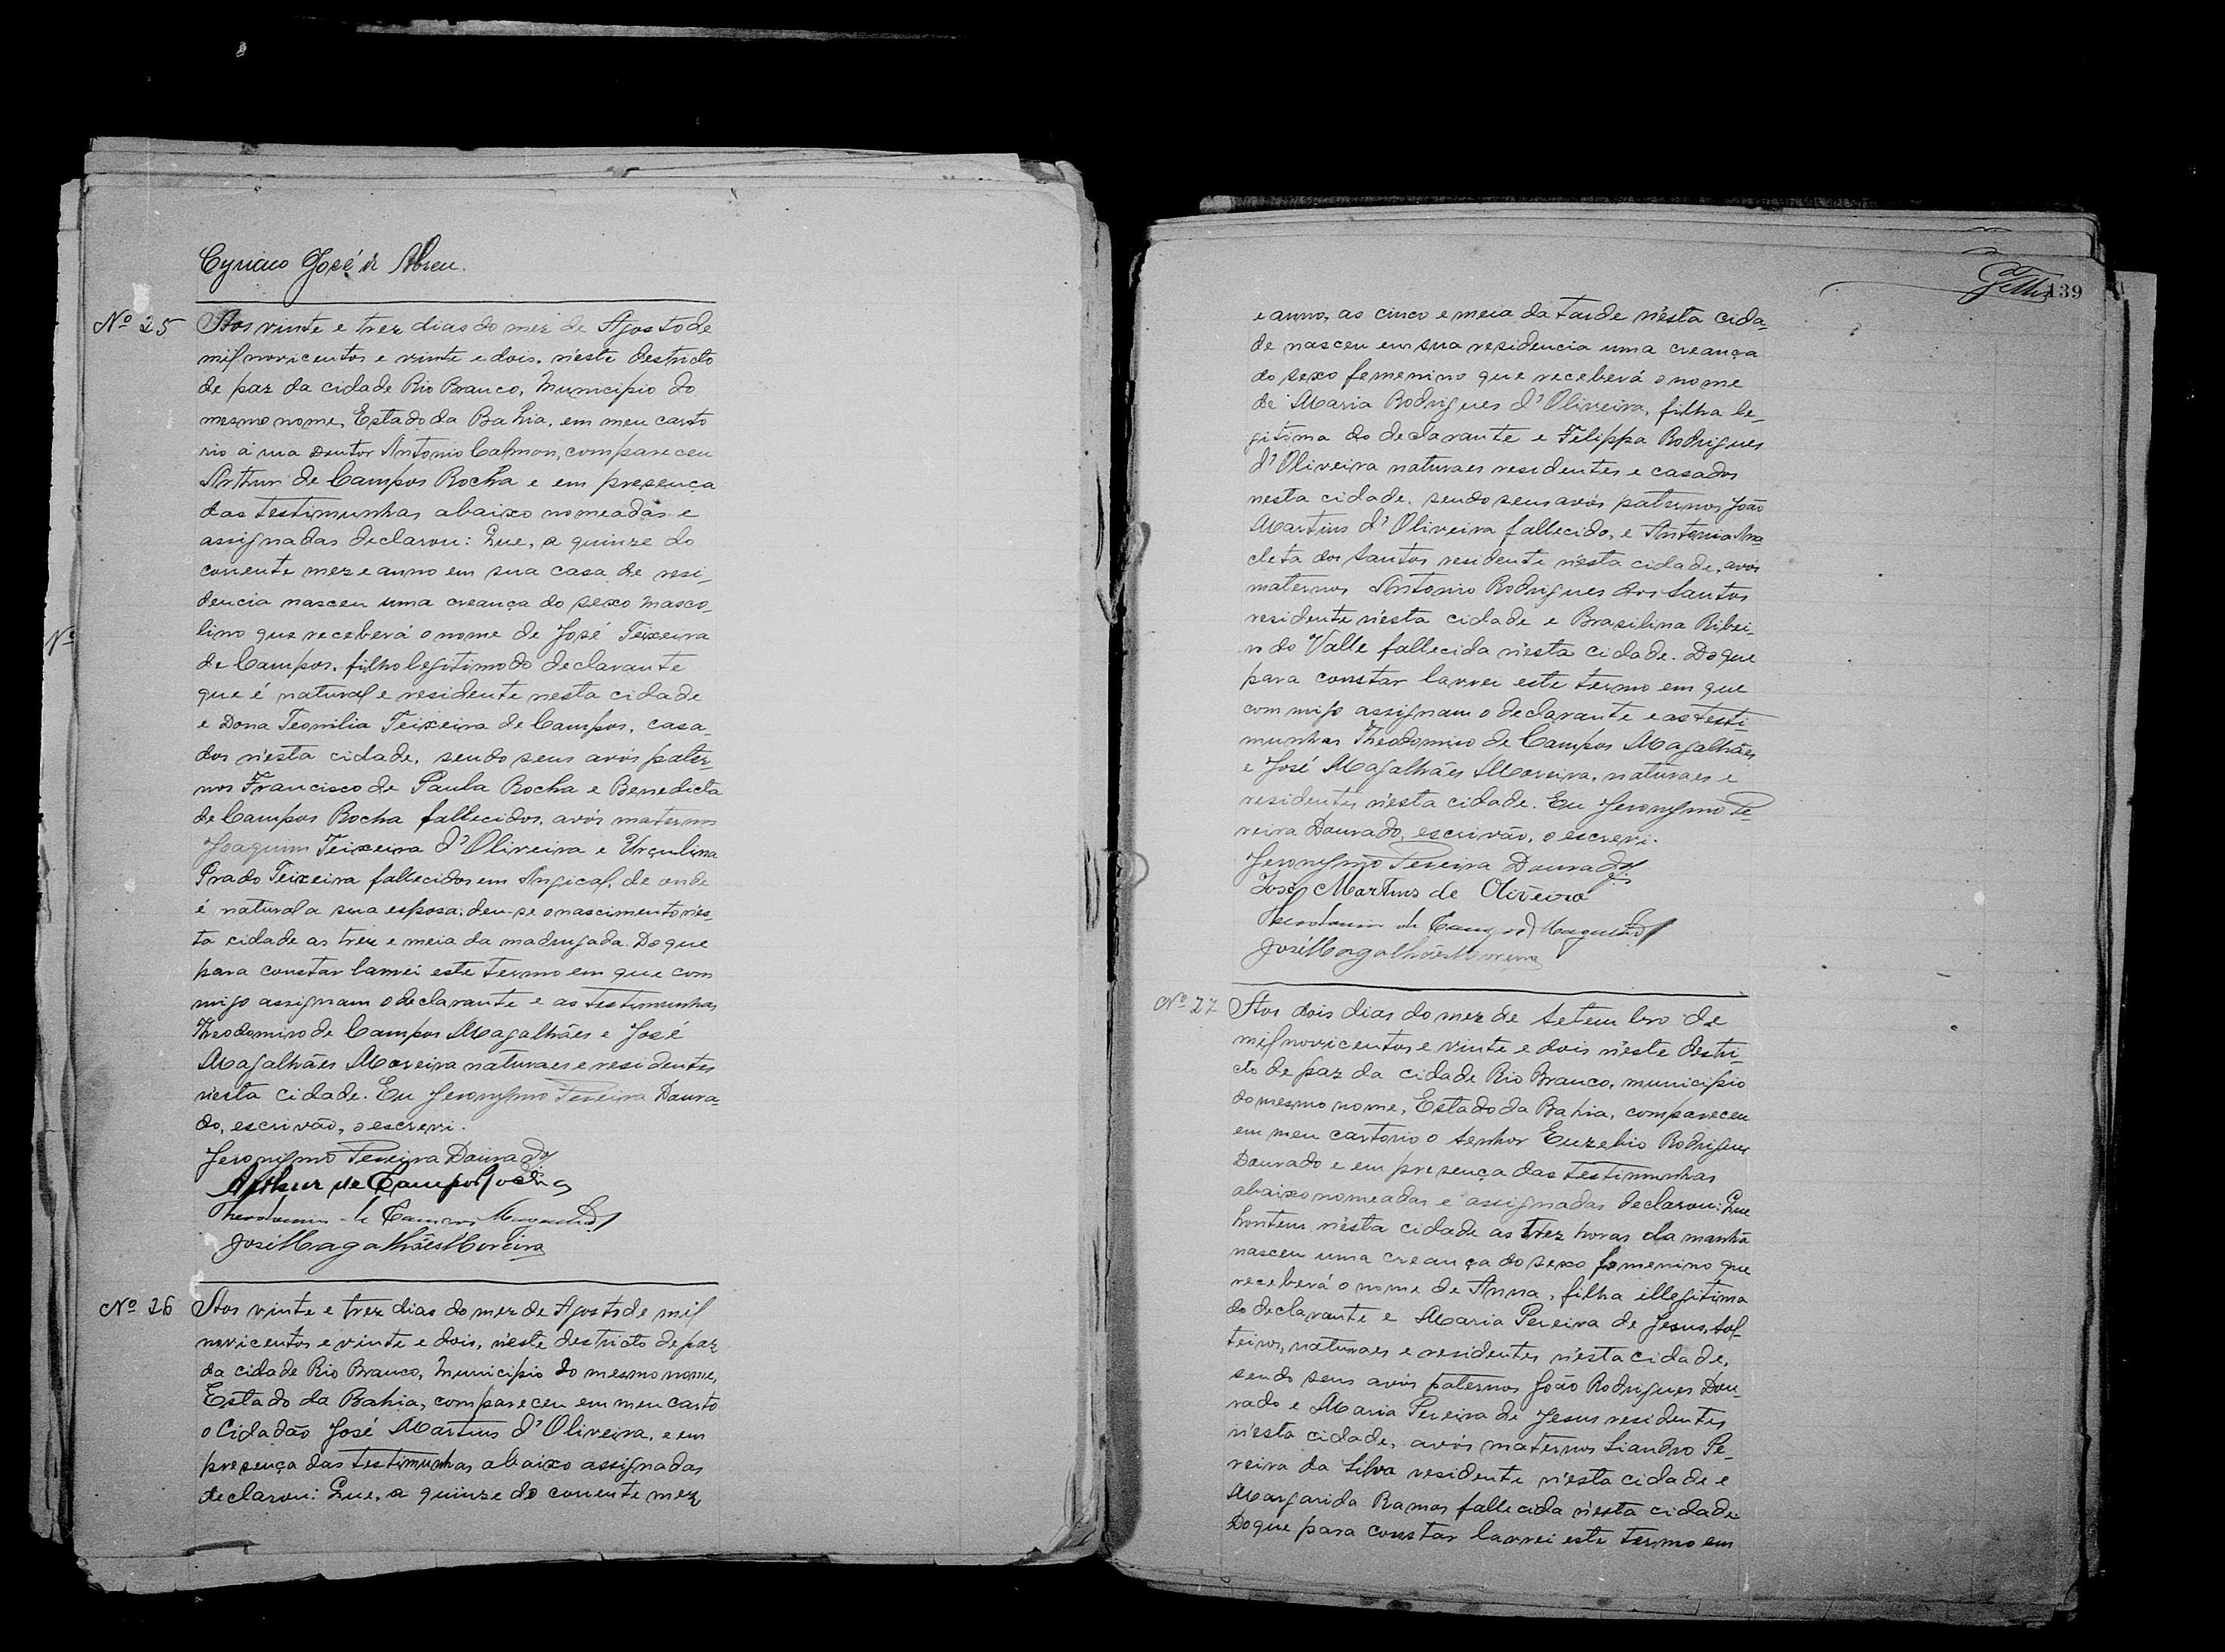 Cyriaco José de Abreu.
Nº 25 Aos vinte e trez dias do mez de Agosto de
mil novicentos e vinte e dois, n'este destricto
de paz da cidade Rio Branco, Municipio do
mesmo nome, Estado da Bahia, em meu carto
rio á rua Doutor Antonio Calmon, compareceu
Arthur de Campos Rocha e em presença
das testimunhas abaixo nomeadas e
assignadas declarou: Que, a quinze do
corrente mez e anno em sua casa de resi-
dencia nasceu uma creança do sexo masco-
lino que receberá o nome de José Teixeira
de Campos, filho legitimo do declarante
que é natural e residente nesta cidade
e Dona Teomilia Teixeira de Campos, casa-
dos n'esta cidade, sendo seus avós pater-
nos Francisco de Paula Rocha e Benedicta
de Campos Rocha fallecidos, avós maternos
Joaquim Teixeira d'Oliveira e Urçulina
Prado Teixeira fallecidos em Angical, de onde
é natural a sua esposa; deu-se o nascimento n'es-
ta cidade as trez e meia da madrugada. Do que
para constar lavrei este termo em que com
migo assignam o declarante e as testimunhas
Theodomiro de Campos Magalhães e José
Magalhães Moreira naturaes e residentes
n'esta cidade. Eu Jeronymo Pereira Doura-
do, escrivão, o escrevi.
Jeronymo Pereira Dourado
Arthur de Campos Rocha
Theodomiro de Campos Magalhães
José Magalhães Moreira
Nº
Nº 26 Aos vinte e trez dias do mez de Agosto de mil
novicentos e vinte e dois, n'este destricto de paz
da cidade Rio Branco, Municipio do mesmo nome,
Estado da Bahia, compareceu em meu carto
o Cidadão José Martins d'Oliveira, e em
presença das testimunhas abaixo assignadas
declarou: Que, a quinze do corrente mez
139
e anno, as cinco e meia da tarde n'esta cida-
de nasceu em sua residencia uma creança
do sexo femenino que receberá o nome
de Maria Rodrigues d'Oliveira, filha le-
gitima do declarante e Felippa Rodrigues
d'Oliveira naturaes residentes e casados
nesta cidade, sendo seus avós paternos João
Martins d'Oliveira fallecido, e Antonia Ana
cleta dos Santos residente n'esta cidade, avós
maternos Antonio Rodrigues dos Santos
residente n'esta cidade e Brasilina Ribei-
ro do Valle fallecida n'esta cidade. Do que
para constar lavrei este termo em que
commigo assignam o declarante e as testi-
munhas Theodomiro de Campos Magalhães
e José Magalhães Moreira, naturaes e
residentes n'esta cidade. Eu Jeronymo Pe-
reira Dourado, escrivão, o escrevi.
Jeronymo Pereira Dourado
José Martins de Oliveira
Theodomiro de Campos Magalhães
José Magalhães Moreira
Nº 27 Aos dois dias do mez de Setembro de
mil novicentos e vinte e dois n'este destri-
cto de paz da cidade Rio Branco, municipio
do mesmo nome, Estado da Bahia, compareceu
em meu cartorio o Senhor Euzebio Rodrigues
Dourado e em presença das testimunhas
abaixo nomeadas e assignadas declarou: Que
hontem n'esta cidade as trez horas da manhã
nasceu uma creança do sexo femenino que
receberá o nome de Anna, filha illegitima
do declarante e Maria Pereira de Jesus, sol-
teiros, naturaes e residentes n'esta cidade,
sendo seus avós paternos João Rodrigues Dou-
rado e Maria Pereira de Jesus residentes
n'esta cidade, avós maternos Liandro Pe-
reira da Silva residente n'esta cidade e
Margarida Ramos fallecida n'esta cidade
Do que para constar lavrei este termo em